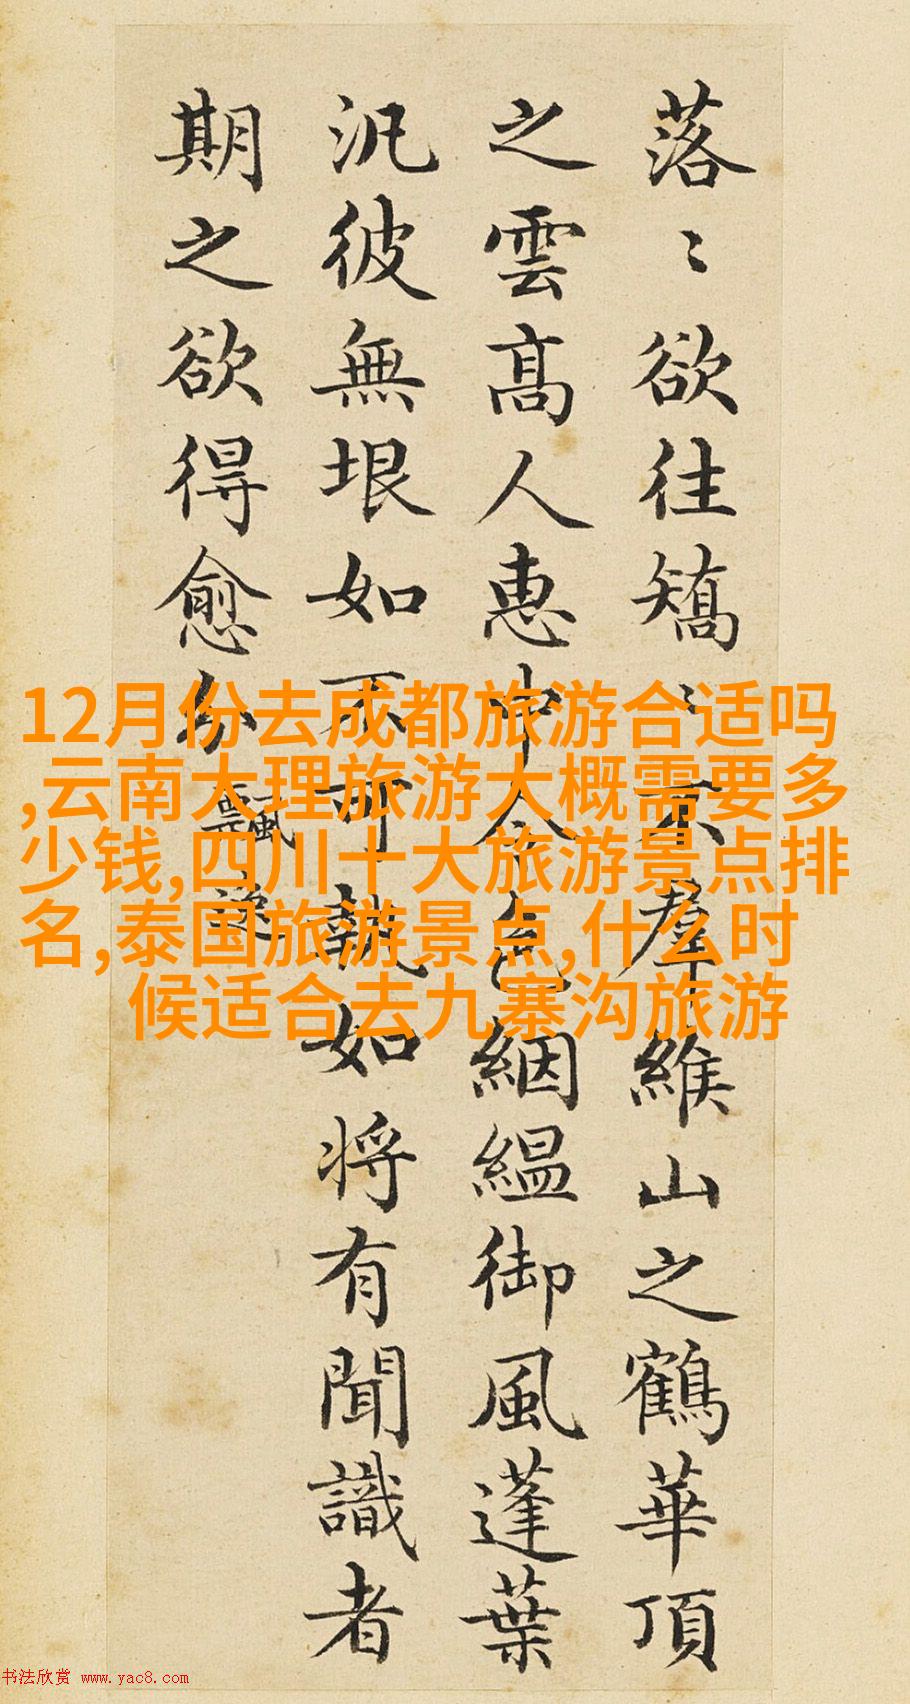 落〻欲往矯〻不羣緱山之鶴華頂
之雲髙人惠中令色絪緼御風蓬葉
汎彼無垠如不可執如將有聞識者
期之欲得愈分
飄逸
12月份去成都旅游合适吗
,云南大理旅游大概需要多
少钱,四川十大旅游景点排
名,泰国旅游景点,什么时
候适合去九寨沟旅游
书法欣赏 www.yac8.com